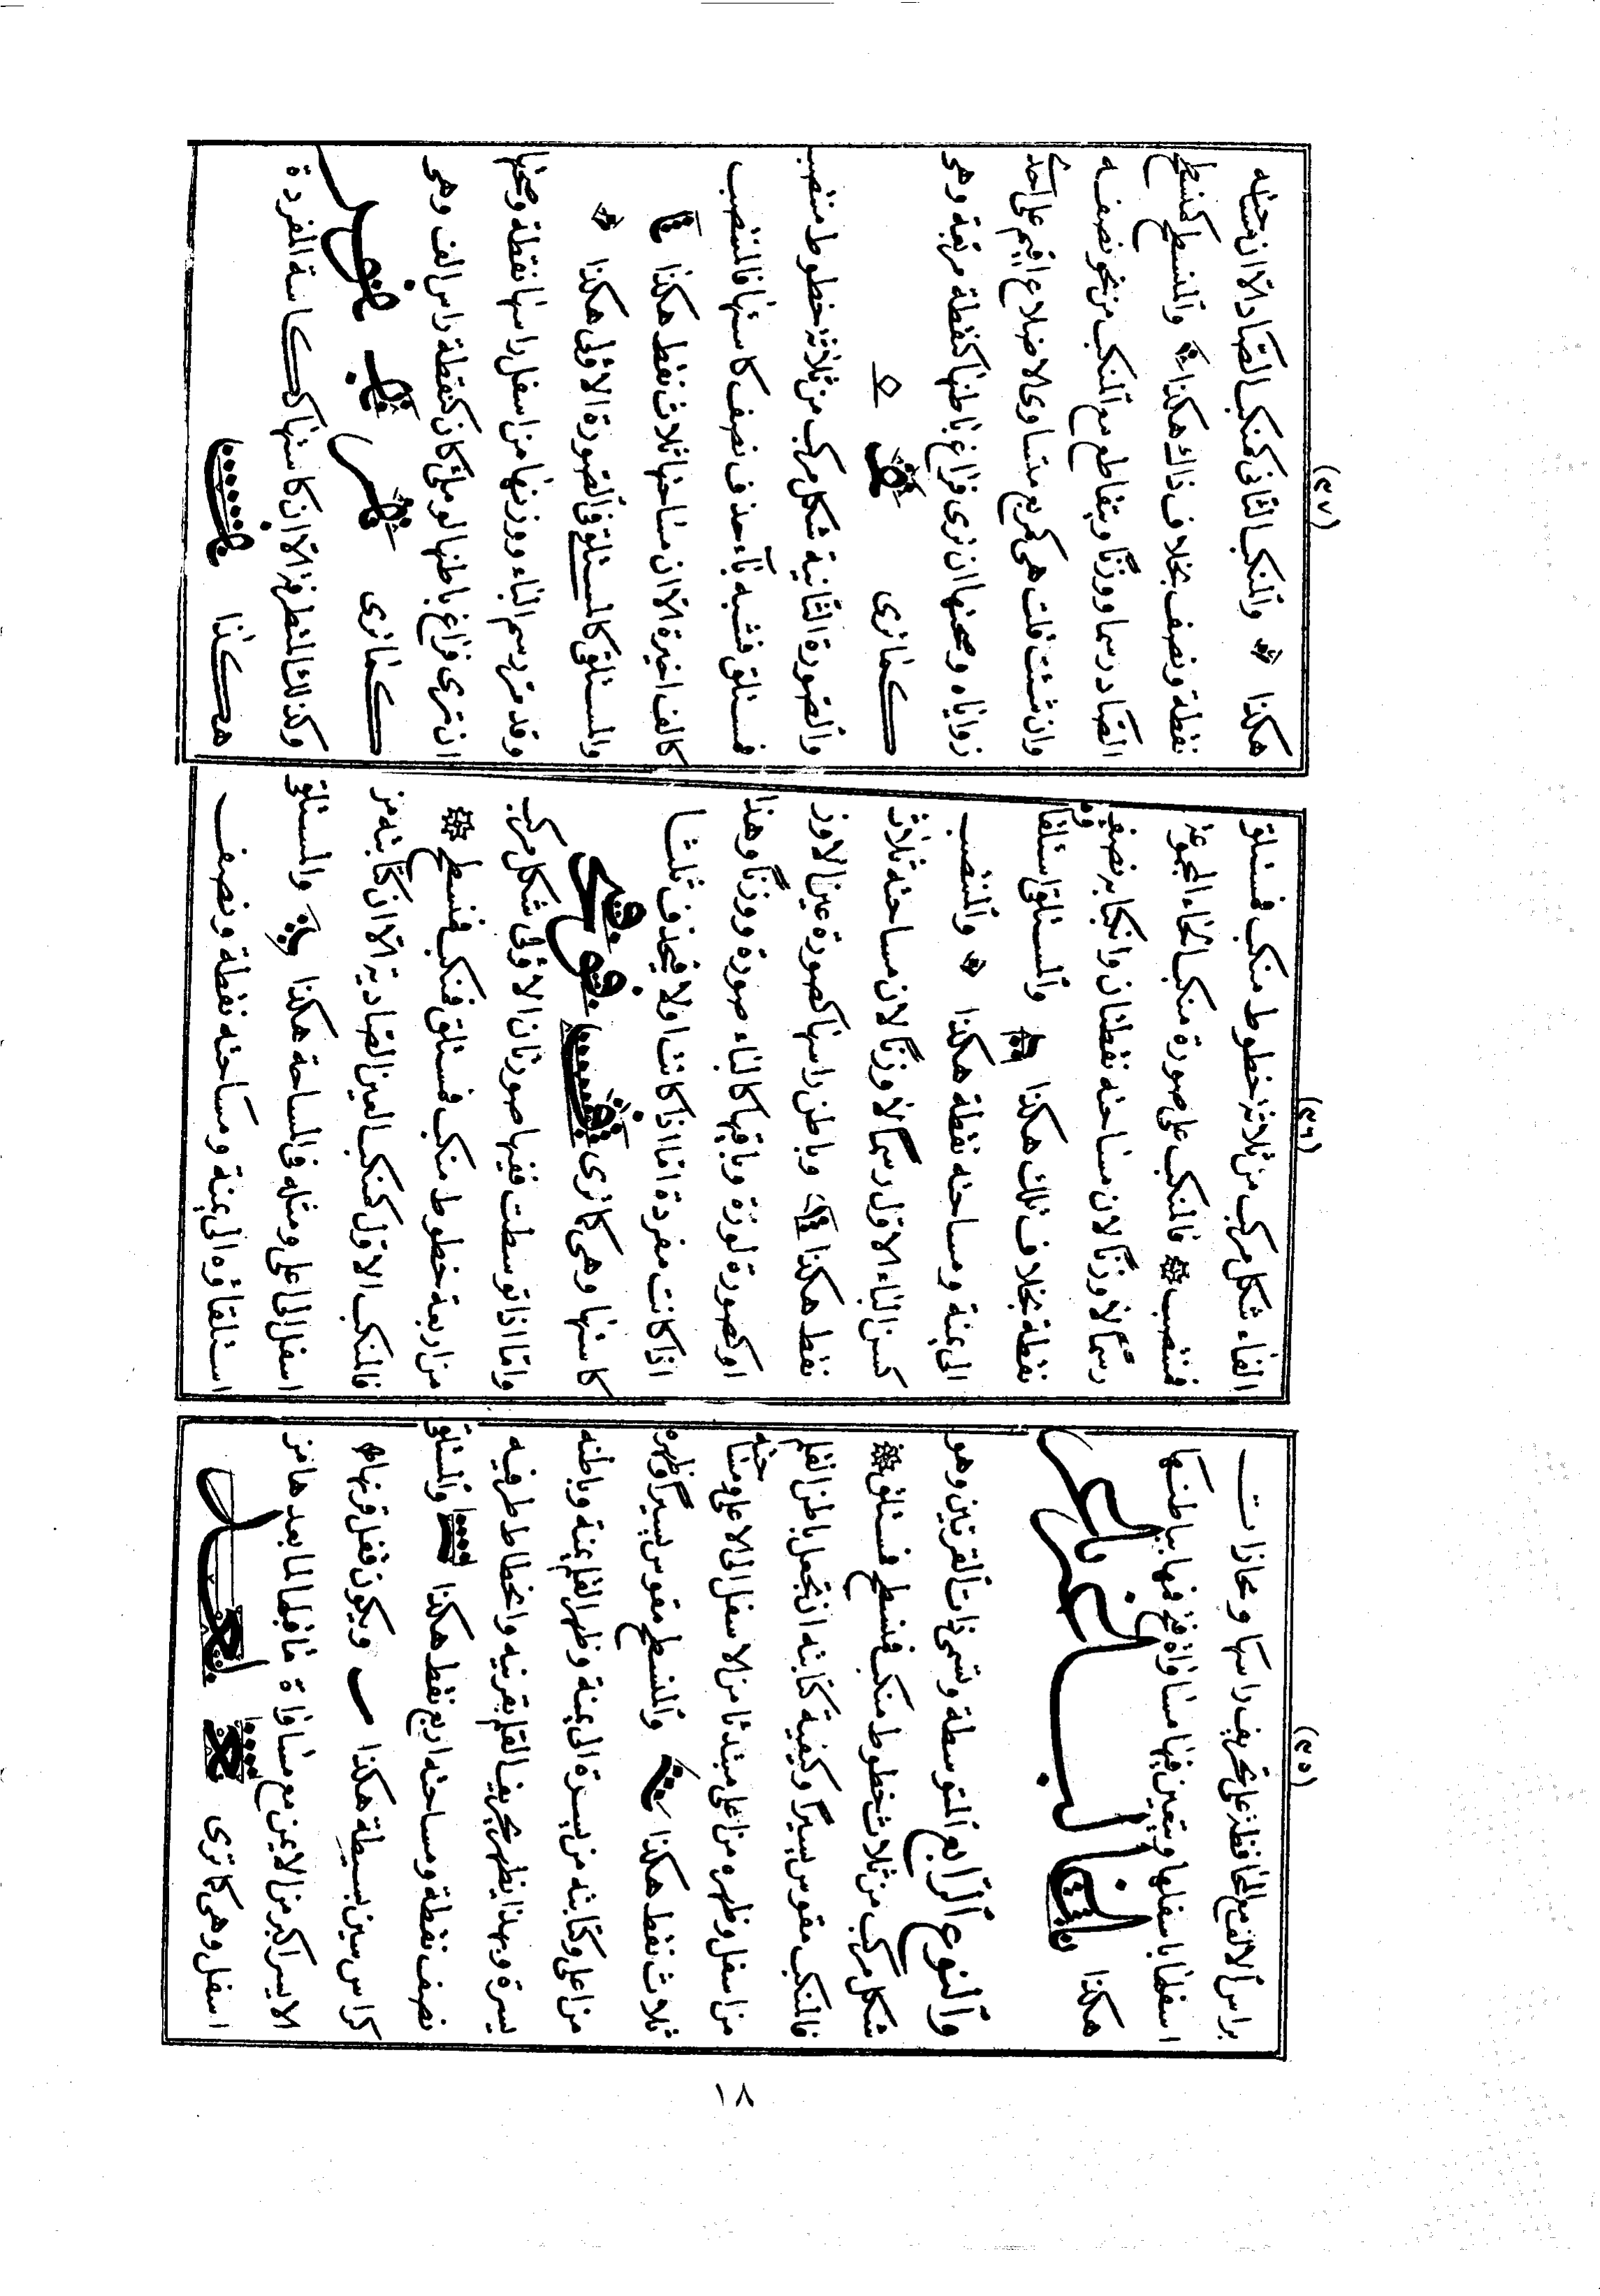 (٢٥)
براس الالف مع المحافظة على تحريف راسها ومحازات
اسفلها باسفلها ويتعين فيها مساواة فتح فمها بباطنها
هكذا
والنوع الرابع المتوسطة وتسمى ذات القرنين وهو
شكل مركب من ثلاث خطوط منكب فمنسطح فمستلق
فالمنكب مقوس يسيرا وكيفية كتابته ان تجعل باطن القلم
من اسفل وظهره من اعلى مبتدئا من الاسفل الى الاعلى ومساحته
ثلاث نقط هكذا والمنسطح مقوس يسيرا وظهره
من اعلى وكتابته من يسرة الى يمنة وظهر القلم يمنة وباطنه
يسرة وبهذا يظهر تحريف القلم بقرنيه وانحطاط طرفيه
نصف نقطة ومساحته اربع نقط هكذا والمستلق
كراس سين بسيطة هكذا ويكون ثقل قرنها
الايسر اكبر من الايمن مع مساواة ما قبلها لما بعدها من
اسفل وهى كما ترى
(٢٦)
الفاء شكل مركب من ثلاثة خطوط منكب فمستلق
فمنتصب فالمنكب على صورة منكب الخاء المجموعة
رسما لا وزنا لان مساحته نقطتان وانكبابه نصف
نقطة بخلاف تلك هكذا والمستلق استلقا
الى يمنة ومساحته نقطة هكذا والمنتصب
كسن الباء الاول رسما لا وزنا لان مساحته ثلاث
نقط هكذا وباطن راسها كصورة عين الاوز
او كصورة لوزة وباقيها كالباء صورة ووزنا وهذا
اذا كانت مفردة اما اذا كانت اولا فيحذف ثلثا
كاستها وهى كما ترى
واما اذا توسطت ففيها صورتان الاولى شكل مركب
من اربعة خطوط منكب فمستلق فمنكب فمنسطح
فالمنكب الاول كمنكب العين الصادية الا ان كتابته من
اسفل الى اعلى ومثله فى المساحة هكذا والمستلق
استلقاؤه الى يمنة ومساحته نقطة ونصف
(٢٧)
هكذا والمنكب الثانى كمنكب الصاد الا ان مساحته
نقطة ونصف بخلاف ذاك هكذا والمنسطح كمنسطح
الصاد رسما ووزنا ويتقاطع مع المنكب من نحو نصفه
وان شئت قلت هى كمربع متساوى الاضلاع اقيم على احد
زواياه وصحنها ان ترى فراغ باطنها كنقطة مربعة وهى
كما ترى
والصورة الثانية شكل مركب من ثلاثة خطوط منتصب
فمستلق فشبه باء حذف نصف كاستها فالمنتصب
كالف اخيرة الا ان مساحتها ثلاث نقط هكذا
والمستلق كالمستلق فى الصورة الاولى هكذا
وقد مر رسم الباء ووزنها من اسفل راسها نقطة وصحنها
ان ترى فراغ باطنها لو ملئ كان كنقطة راس الف وهى
كما ترى
وكذلك المتطرفة الا ان كاستها كـكاسة المفردة
هكذا
١٨